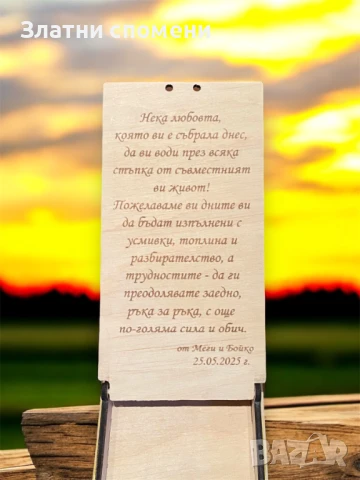 Златни спомени
Нека любовта,
която ви е събрала днес,
да ви води през всяка
стъпка от съвместният
ви живот!
Пожелаваме ви дните ви
да бъдат изпълнени с
усмивки, топлина и
разбирателство, а
трудностите - да ги
преодолявате заедно,
ръка за ръка, с още
по-голяма сила и обич.
от Меги и Бойко
25.05.2025 г.
BAZAR